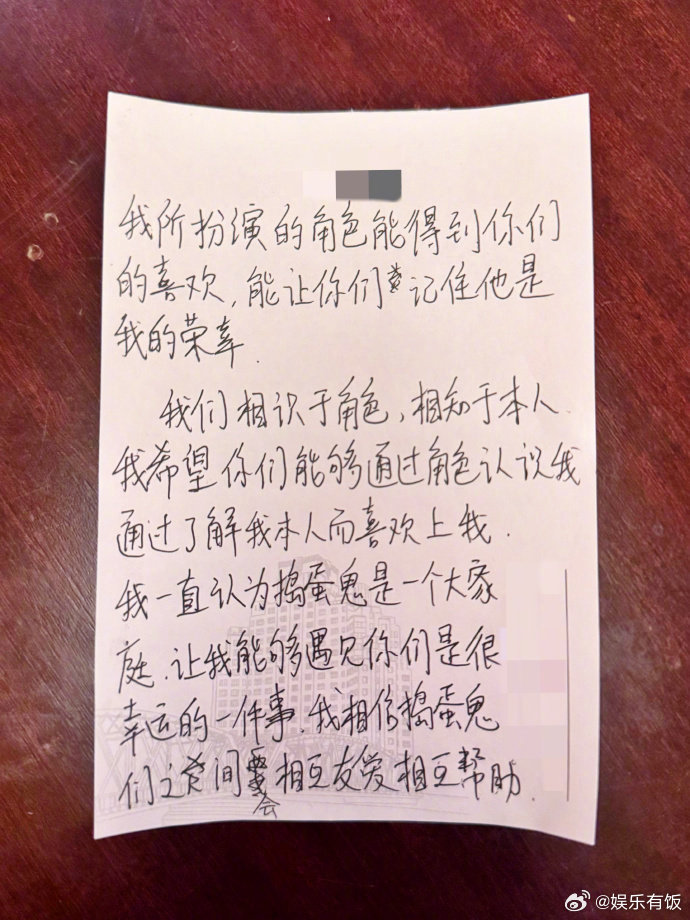 我所扮演的角色能得到你们
的喜欢，能让你们记住他是
我的荣幸.
我们相识于角色，相知于本人.
我希望你们能够通过角色认识我
通过了解我本人而喜欢上我.
我一直认为捣蛋鬼是一个大家
庭.让我能够遇见你们是很
幸运的一件事.我相信捣蛋鬼
们之间会相互友爱相互帮助.
@娱乐有饭